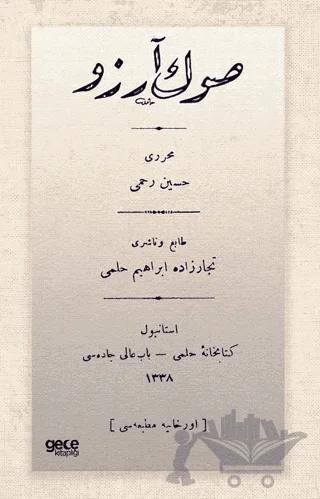 صوك آرزو
محرری
حسين رحمی
طابع وناشری
تجارزاده ابراهيم حلمی
استانبول
كتابخانهٔ حلمی — باب عالی جاده‌سی
١٣٣٨
[ اورخانيه مطبعه‌سی ]
gece
kitaplığı